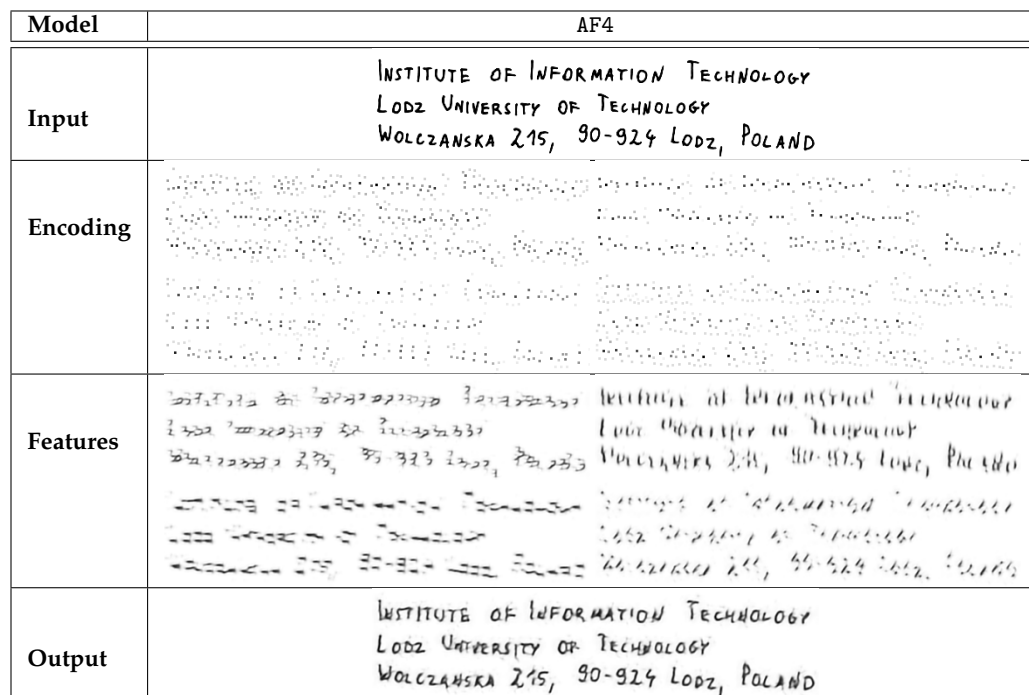 Model AF4
Input
INSTITUTE OF INFORMATION TECHNOLOGY
LODZ UNIVERSITY OF TECHNOLOGY
WOLCZANSKA 215, 90-924 LODZ, POLAND
Encoding
Features
Output
INSTITUTE OF INFORMATION TECHNOLOGY
LODZ UNIVERSITY OF TECHNOLOGY
WOLCZANSKA 215, 90-924 LODZ, POLAND